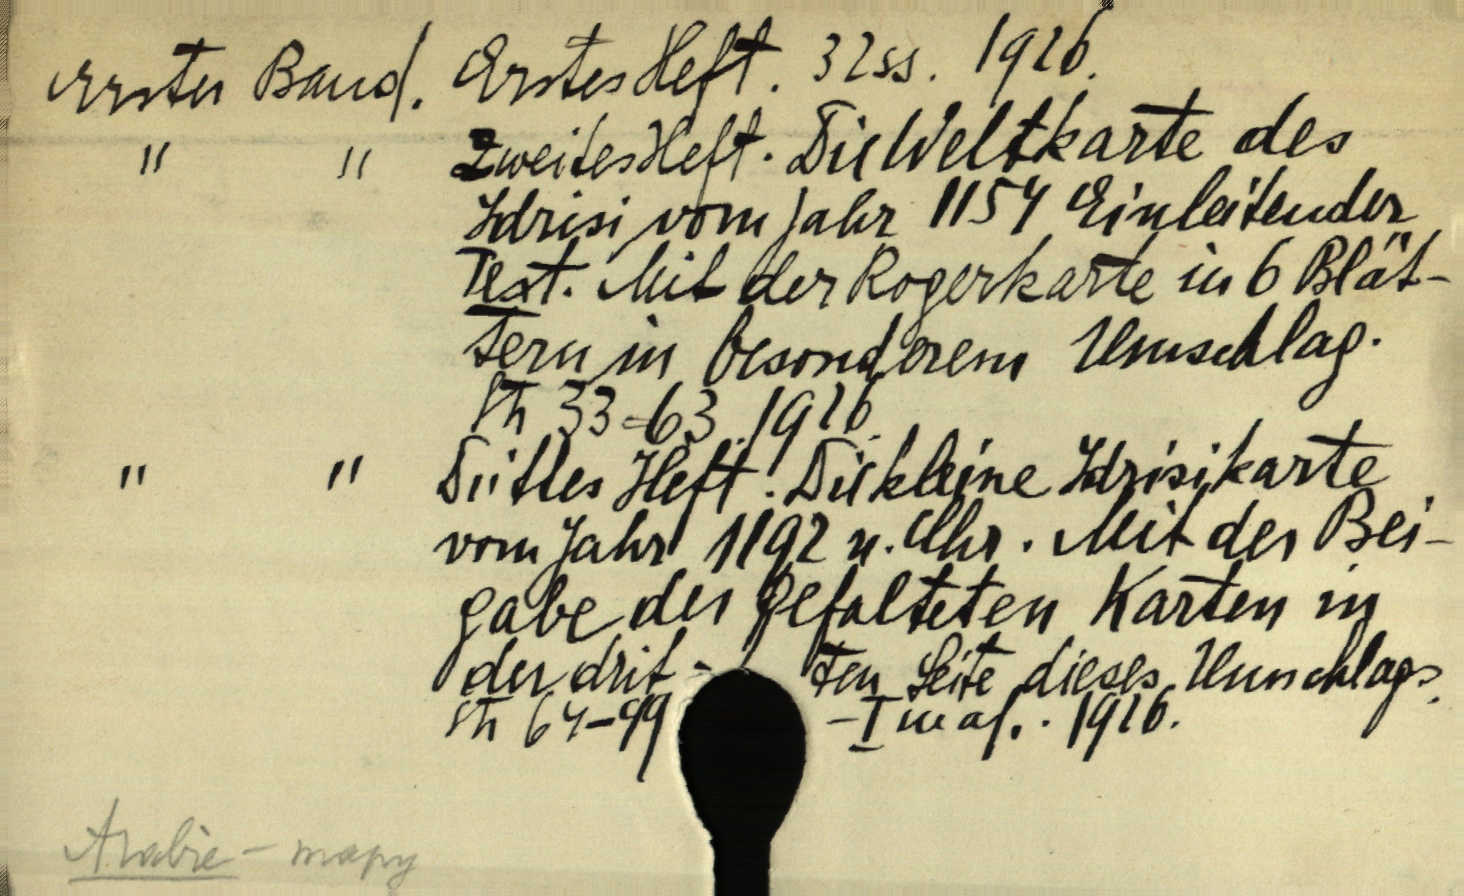 Erster Band. Erstes Heft. 32 ss. 1926.
" " Zweites Heft. Die Weltkarte des
Idrisi vom Jahr 1154 Einleitender
Text. Mit der Rogerkarte in 6 Blät-
tern in besonderem Umschlag.
Str 33-63. 1926.
" " Drittes Heft. Die kleine Idrisikarte
vom Jahr 1192 n. Chr. Mit der Bei-
gabe der gefalteten Karten in
der drit- ten Seite dieses Umschlags.
Str 64-99 - I 1926.
Arabie - mapy